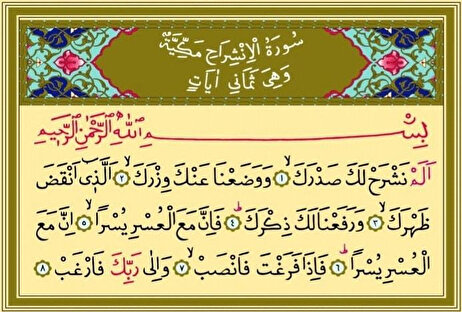 سُورَةُ الْاِنْشِرَاحِ مَكِّيَّةٌ
وَهِيَ ثَمَانِي اٰيَاتٍ
بِسْمِ اللّٰهِ الرَّحْمٰنِ الرَّحِيمِ
اَلَمْ نَشْرَحْ لَكَ صَدْرَكَۙ ﴿١﴾ وَوَضَعْنَا عَنْكَ وِزْرَكَۙ ﴿٢﴾ اَلَّذِٓي اَنْقَضَ
ظَهْرَكَۙ ﴿٣﴾ وَرَفَعْنَا لَكَ ذِكْرَكَۜ ﴿٤﴾ فَاِنَّ مَعَ الْعُسْرِ يُسْرًاۙ ﴿٥﴾ اِنَّ مَعَ
الْعُسْرِ يُسْرًاۜ ﴿٦﴾ فَاِذَا فَرَغْتَ فَانْصَبْۙ ﴿٧﴾ وَاِلٰى رَبِّكَ فَارْغَبْ ﴿٨﴾